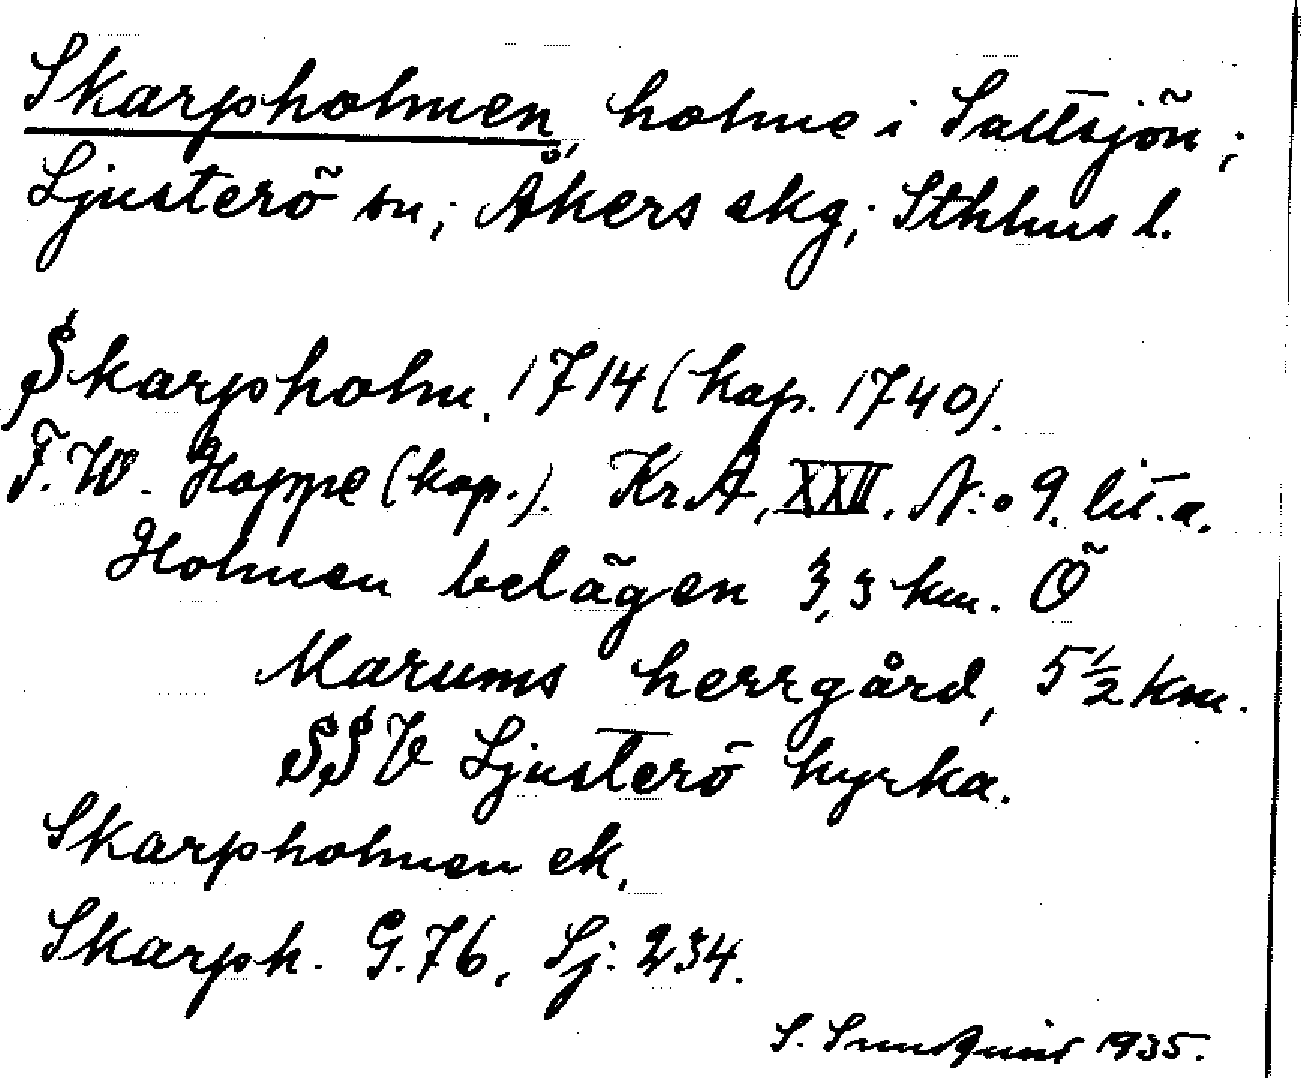 Skarpholmen, holme i Saltsjön;
Ljusterö sn; Åkers skg; Sthlms l.
Skarpholm. 1714 (kop. 1740).
F.W. Hoppe (kop.). Kr.A, XXII. N:o 9. lit. a.
Holmen belägen 3,3 km. Ö
Marums herrgård, 5 1/2 km.
SSV Ljusterö kyrka.
Skarpholmen ek,
Skarph. G.76, Sj: 234.
S. Sundquist 1935.